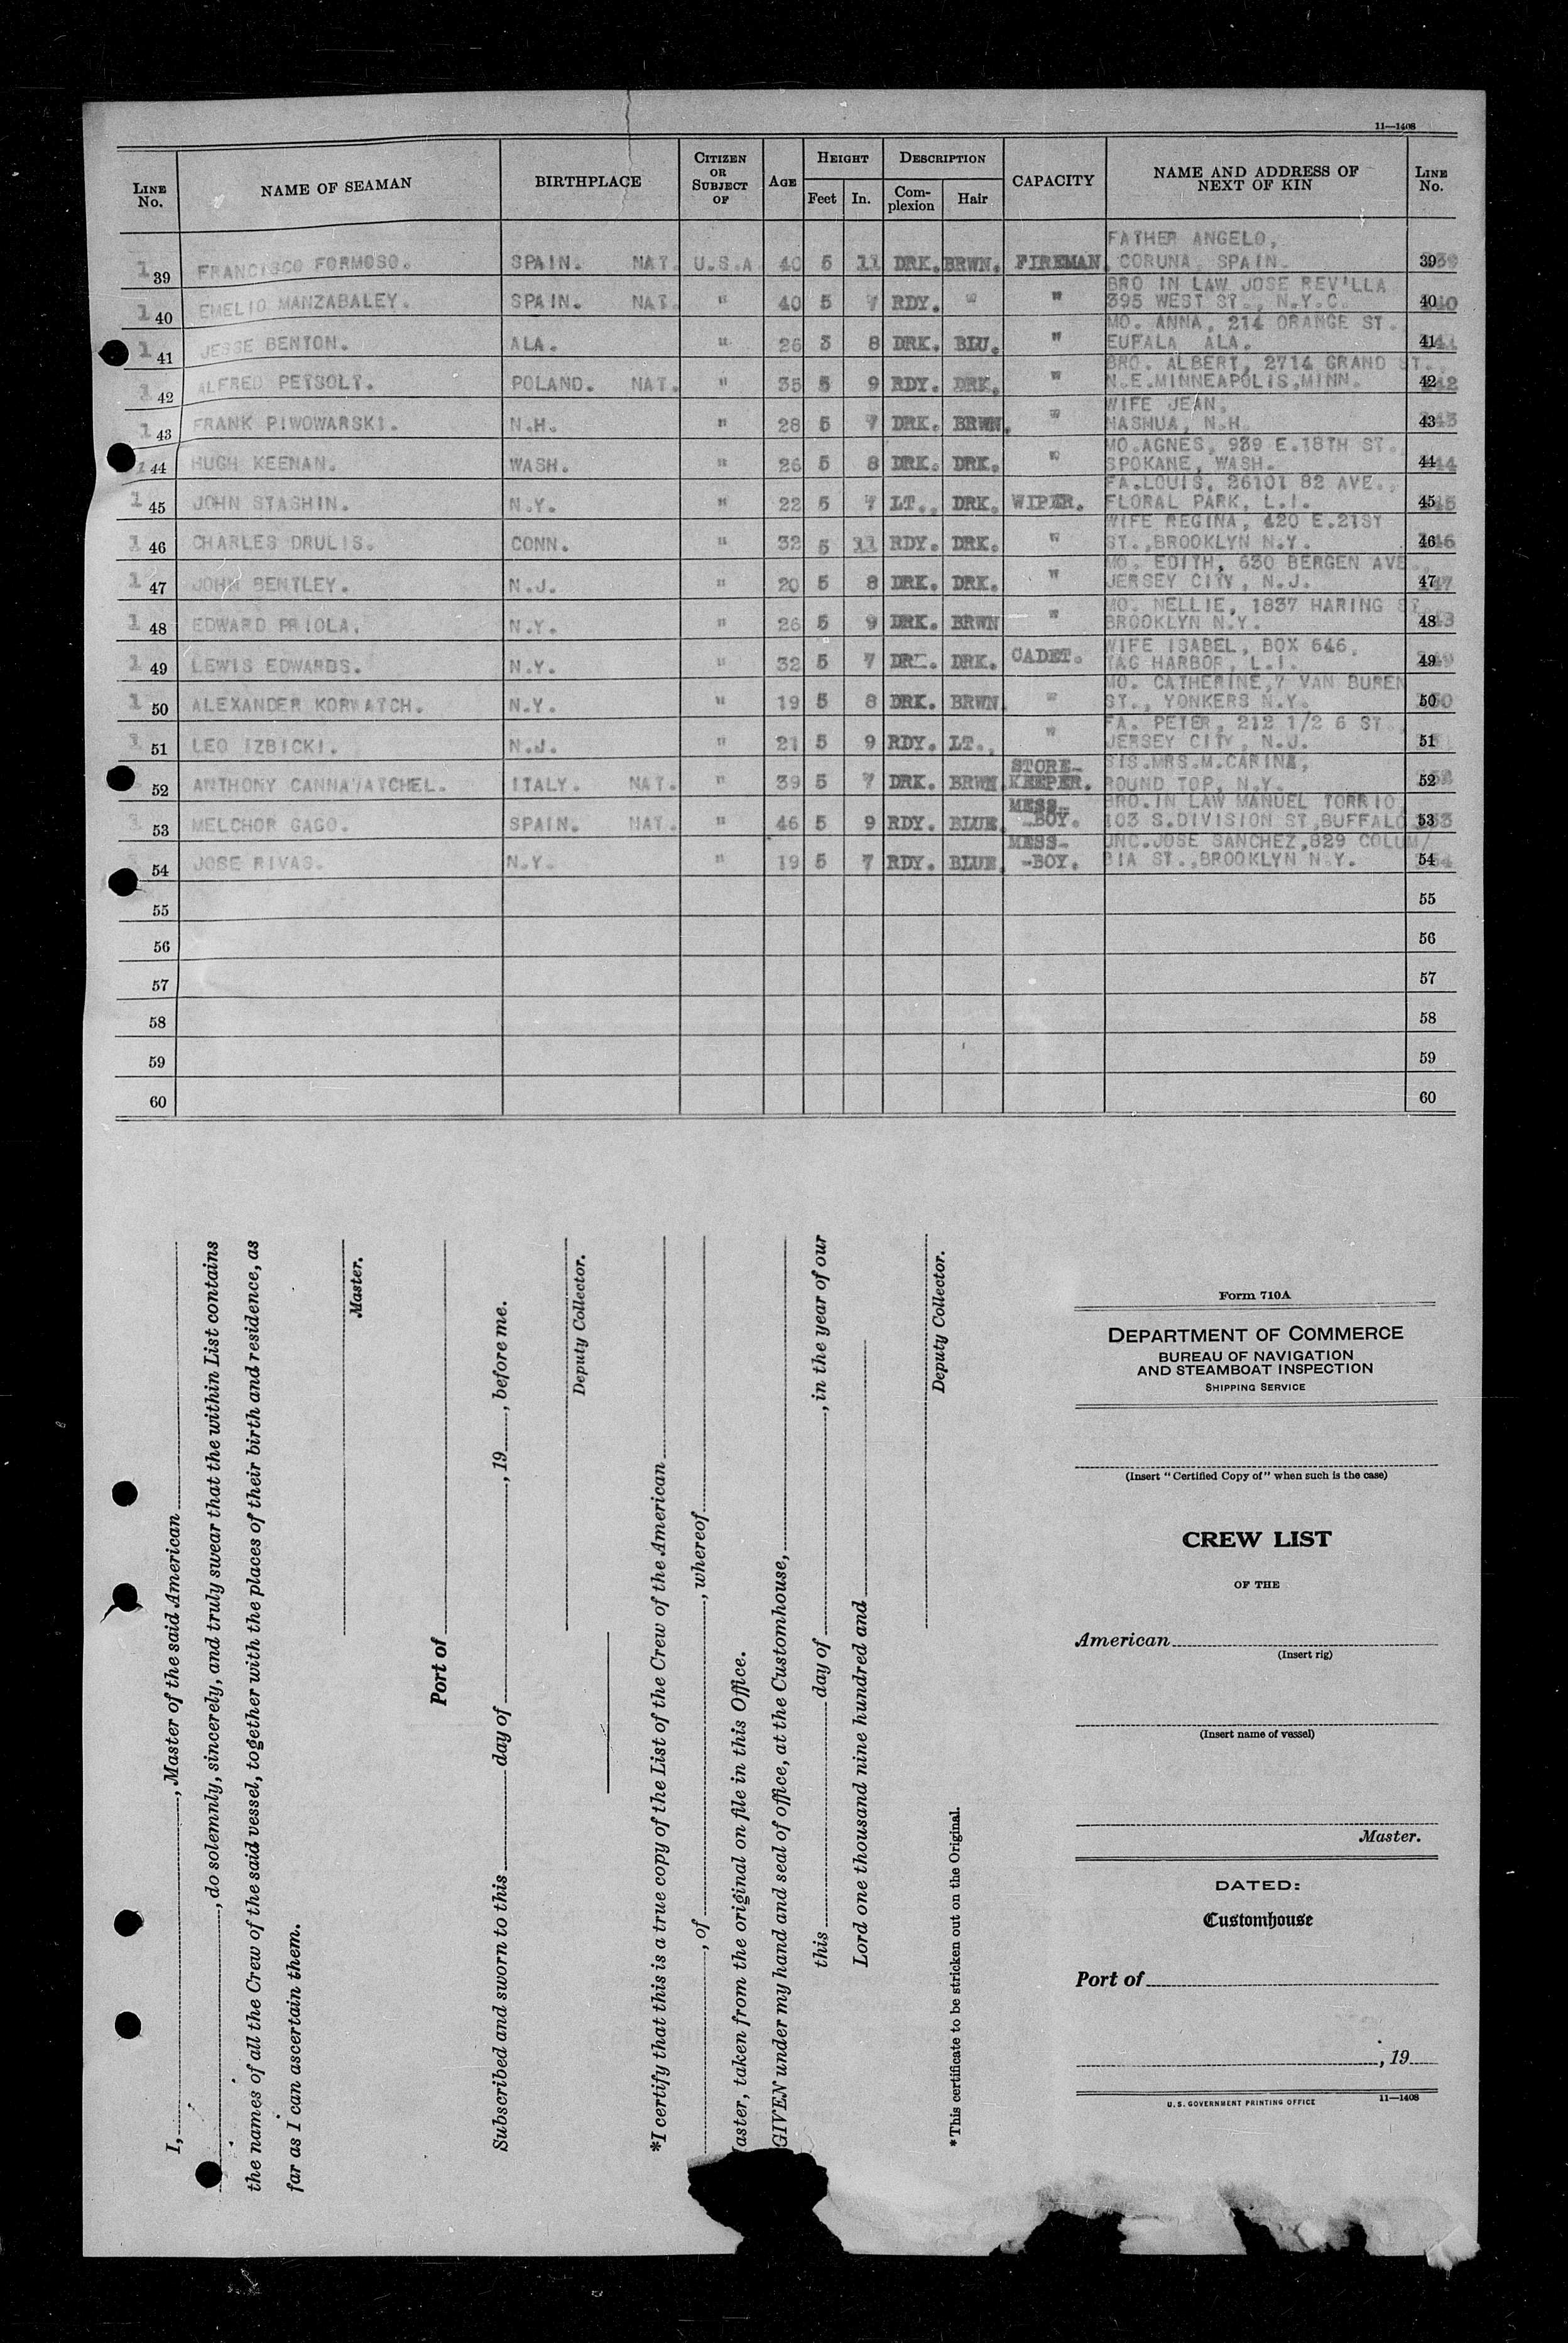 11—1408
LINE No. NAME OF SEAMAN BIRTHPLACE CITIZEN OR SUBJECT OF AGE HEIGHT Feet In. DESCRIPTION Complexion Hair CAPACITY NAME AND ADDRESS OF NEXT OF KIN LINE No.
FATHER ANGELO,
1 39 FRANCISCO FORMOSO. SPAIN. NAT. U.S.A 40 5 11 DRK. BRWN. FIREMAN. CORUNA SPAIN. 39
BRO IN LAW JOSE REV'LLA
1 40 EMELIO MANZABALEY. SPAIN. NAT. " 40 5 7 RDY. " " 395 WEST ST., N.Y.C. 40
MO. ANNA, 214 ORANGE ST.,
1 41 JESSE BENTON. ALA. " 26 5 8 DRK. BLU. " EUFALA ALA. 41
BRO. ALBERT, 2714 GRAND ST.,
1 42 ALFRED PETSOLT. POLAND. NAT. " 35 5 9 RDY. DRK. " N.E.MINNEAPOLIS,MINN. 42
WIFE JEAN,
1 43 FRANK PIWOWARSKI. N.H. " 28 5 7 DRK. BRWN. " NASHUA, N.H. 43
MO.AGNES, 939 E.18TH ST.,
1 44 HUGH KEENAN. WASH. " 26 5 8 DRK. DRK. " SPOKANE, WASH. 44
FA.LOUIS, 26101 82 AVE.,
1 45 JOHN STASHIN. N.Y. " 22 5 7 LT., DRK. WIPER. FLORAL PARK, L.I. 45
WIFE REGINA, 420 E.21SY
1 46 CHARLES DRULIS. CONN. " 32 5 11 RDY. DRK. " ST.,BROOKLYN N.Y. 46
MO. EDITH, 630 BERGEN AVE.,
1 47 JOHN BENTLEY. N.J. " 20 5 8 DRK. DRK. " JERSEY CITY, N.J. 47
MO. NELLIE, 1837 HARING ST.
1 48 EDWARD PRIOLA. N.Y. " 26 5 9 DRK. BRWN " BROOKLYN N.Y. 48
WIFE ISABEL, BOX 646,
1 49 LEWIS EDWARDS. N.Y. " 32 5 7 DRK. DRK. CADET. TAG HARBOR, L.I. 49
MO. CATHERINE,7 VAN BUREN
1 50 ALEXANDER KORWATCH. N.Y. " 19 5 8 DRK. BRWN " ST., YONKERS N.Y. 50
FA. PETER, 212 1/2 6 ST.,
1 51 LEO IZBICKI. N.J. " 21 5 9 RDY. LT., " JERSEY CITY, N.J. 51
STORE- SIS.MRS.M.CARINA,
52 ANTHONY CANNAVATCHEL. ITALY. NAT. " 39 5 7 DRK. BRWN. KEEPER. ROUND TOP, N.Y. 52
MESS- BRO.IN LAW MANUEL TORRIO
53 MELCHOR GAGO. SPAIN. NAT. " 46 5 9 RDY. BLUE. -BOY. 103 S.DIVISION ST,BUFFALO 53
MESS- UNC.JOSE SANCHEZ,829 COLUM/
54 JOSE RIVAS. N.Y. " 19 5 7 RDY. BLUE. -BOY. BIA ST.,BROOKLYN N.Y. 54
55 55
56 56
57 57
58 58
59 59
60 60
I, , Master of the said American
, do solemnly, sincerely, and truly swear that the within List contains
the names of all the Crew of the said vessel, together with the places of their birth and residence, as
far as I can ascertain them.
Master.
Port of
Subscribed and sworn to this day of , 19 , before me.
Deputy Collector.
*I certify that this is a true copy of the List of the Crew of the American
, of , whereof
aster, taken from the original on file in this Office.
GIVEN under my hand and seal of office, at the Customhouse,
this day of , in the year of our
Lord one thousand nine hundred and
Deputy Collector.
*This certificate to be stricken out on the Original.
Form 710A
DEPARTMENT OF COMMERCE
BUREAU OF NAVIGATION
AND STEAMBOAT INSPECTION
SHIPPING SERVICE
(Insert "Certified Copy of" when such is the case)
CREW LIST
OF THE
American
(Insert rig)
(Insert name of vessel)
Master.
DATED:
Customhouse
Port of
, 19
U.S. GOVERNMENT PRINTING OFFICE 11—1408